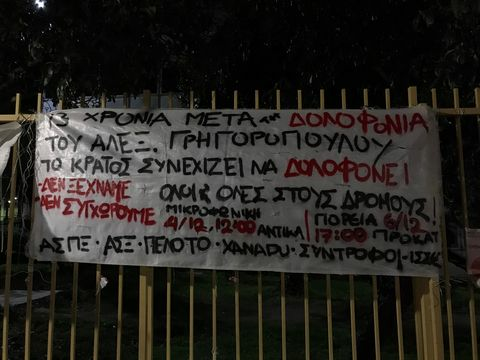 13 ΧΡΟΝΙΑ ΜΕΤΑ ΤΗ ΔΟΛΟΦΟΝΙΑ
ΤΟΥ ΑΛΕΞ. ΓΡΗΓΟΡΟΠΟΥΛΟΥ
ΤΟ ΚΡΑΤΟΣ ΣΥΝΕΧΙΖΕΙ ΝΑ ΔΟΛΟΦΟΝΕΙ
-ΔΕΝ ΞΕΧΝΑΜΕ
-ΔΕΝ ΣΥΓΧΩΡΟΥΜΕ
ΟΛΟΙ & ΟΛΕΣ ΣΤΟΥΣ ΔΡΟΜΟΥΣ!
ΜΙΚΡΟΦΩΝΙΚΗ
4/12, 12:00 ΑΝΤΙΚΑ
ΠΟΡΕΙΑ 6/12
17:00 ΠΡΟΚΑΤ
ΑΣΠΕ · ΑΣΞ · ΠΕΛΟΤΟ · XANADU · ΣΥΝΤΡΟΦΟΙ-ΙΣΣΕΣ